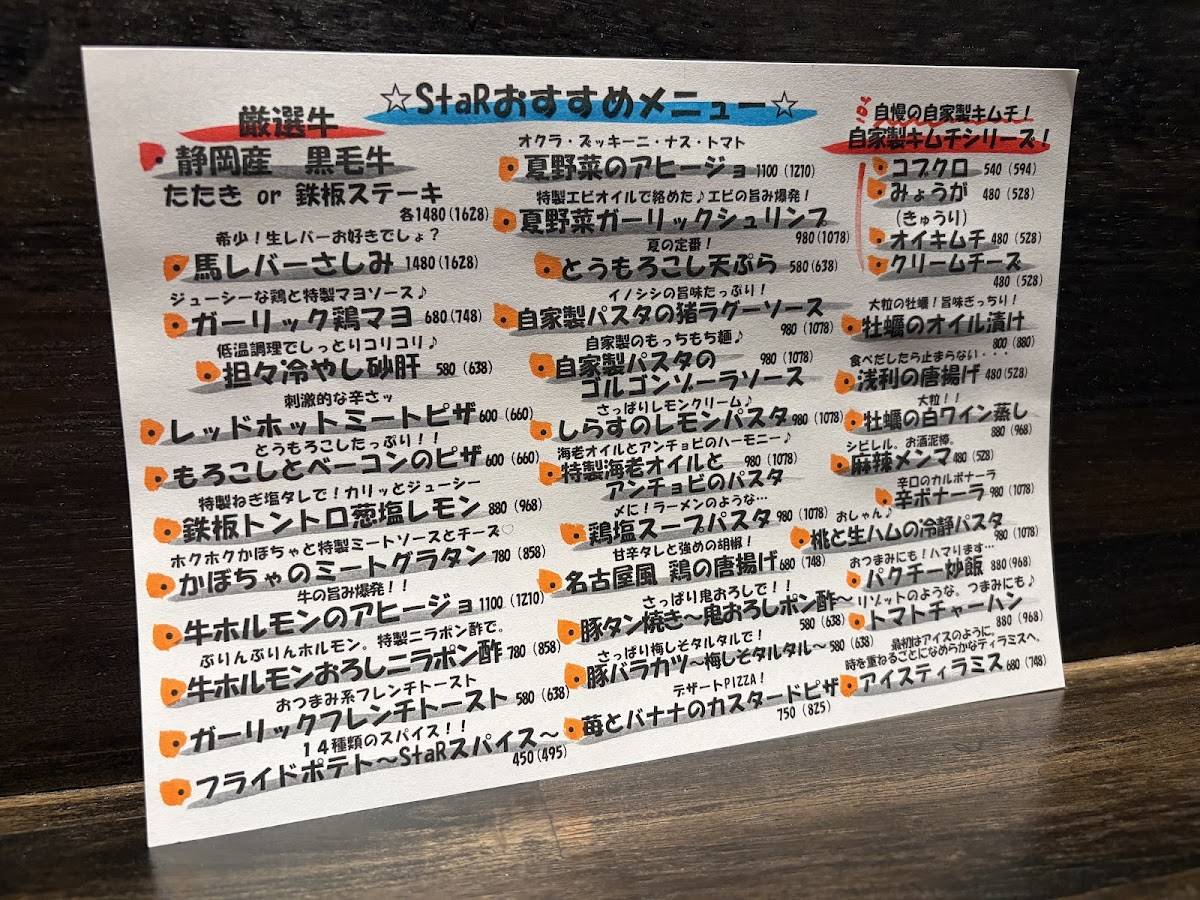 ☆StaRおすすめメニュー☆
厳選牛
静岡産 黒毛牛
たたき or 鉄板ステーキ
各1480(1628)
希少!生レバーお好きでしょ?
馬レバーさしみ 1480(1628)
ジューシーな鶏と特製マヨソース♪
ガーリック鶏マヨ 680(748)
低温調理でしっとりコリコリ♪
担々冷やし砂肝 580(638)
刺激的な辛さッ
レッドホットミートピザ 600(660)
とうもろこしたっぷり!!
もろこしとベーコンのピザ 600(660)
特製ねぎ塩タレで!カリッとジューシー
鉄板トントロ葱塩レモン 880(968)
ホクホクかぼちゃと特製ミートソースとチーズ♡
かぼちゃのミートグラタン 780(858)
牛の旨み爆発!!
牛ホルモンのアヒージョ 1100(1210)
ぷりんぷりんホルモン。特製ニラポン酢で。
牛ホルモンおろしニラポン酢 780(858)
おつまみ系フレンチトースト
ガーリックフレンチトースト 580(638)
14種類のスパイス!!
フライドポテト〜StaRスパイス〜
450(495)
オクラ・ズッキーニ・ナス・トマト
夏野菜のアヒージョ 1100(1210)
特製エビオイルで絡めた♪エビの旨み爆発!
夏野菜ガーリックシュリンプ
980(1078)
夏の定番!
とうもろこし天ぷら 580(638)
イノシシの旨味たっぷり!
自家製パスタの猪ラグーソース
980(1078)
自家製のもっちもち麺♪
自家製パスタの 980(1078)
ゴルゴンゾーラソース
さっぱりレモンクリーム♪
しらすのレモンパスタ 980(1078)
海老オイルとアンチョビのハーモニー♪
特製海老オイルと 980(1078)
アンチョビのパスタ
〆に!ラーメンのような…
鶏塩スープパスタ 980(1078)
甘辛タレと強めの胡椒!
名古屋風 鶏の唐揚げ 680(748)
さっぱり鬼おろしで!!
豚タン焼き〜鬼おろしポン酢〜
580(638)
さっぱり梅しそタルタルで!
豚バラカツ〜梅しそタルタル〜 580(638)
デザートPIZZA!
苺とバナナのカスタードピザ
750(825)
自慢の自家製キムチ!
自家製キムチシリーズ!
コブクロ 540(594)
みょうが 480(528)
(きゅうり)
オイキムチ 480(528)
クリームチーズ
480(528)
大粒の牡蠣!旨味ぎっちり!
牡蠣のオイル漬け
800(880)
食べだしたら止まらない・・・
浅利の唐揚げ 480(528)
大粒!!
牡蠣の白ワイン蒸し
880(968)
シビレル。お酒泥棒。
麻辣メンマ 480(528)
辛口のカルボナーラ
辛ボナーラ 980(1078)
おしゃん♪
桃と生ハムの冷静パスタ
980(1078)
おつまみにも!ハマります…
パクチー炒飯 880(968)
リゾットのような。つまみにも♪
トマトチャーハン
880(968)
最初はアイスのように。
時を重ねるごとになめらかなティラミスへ。
アイスティラミス 680(748)